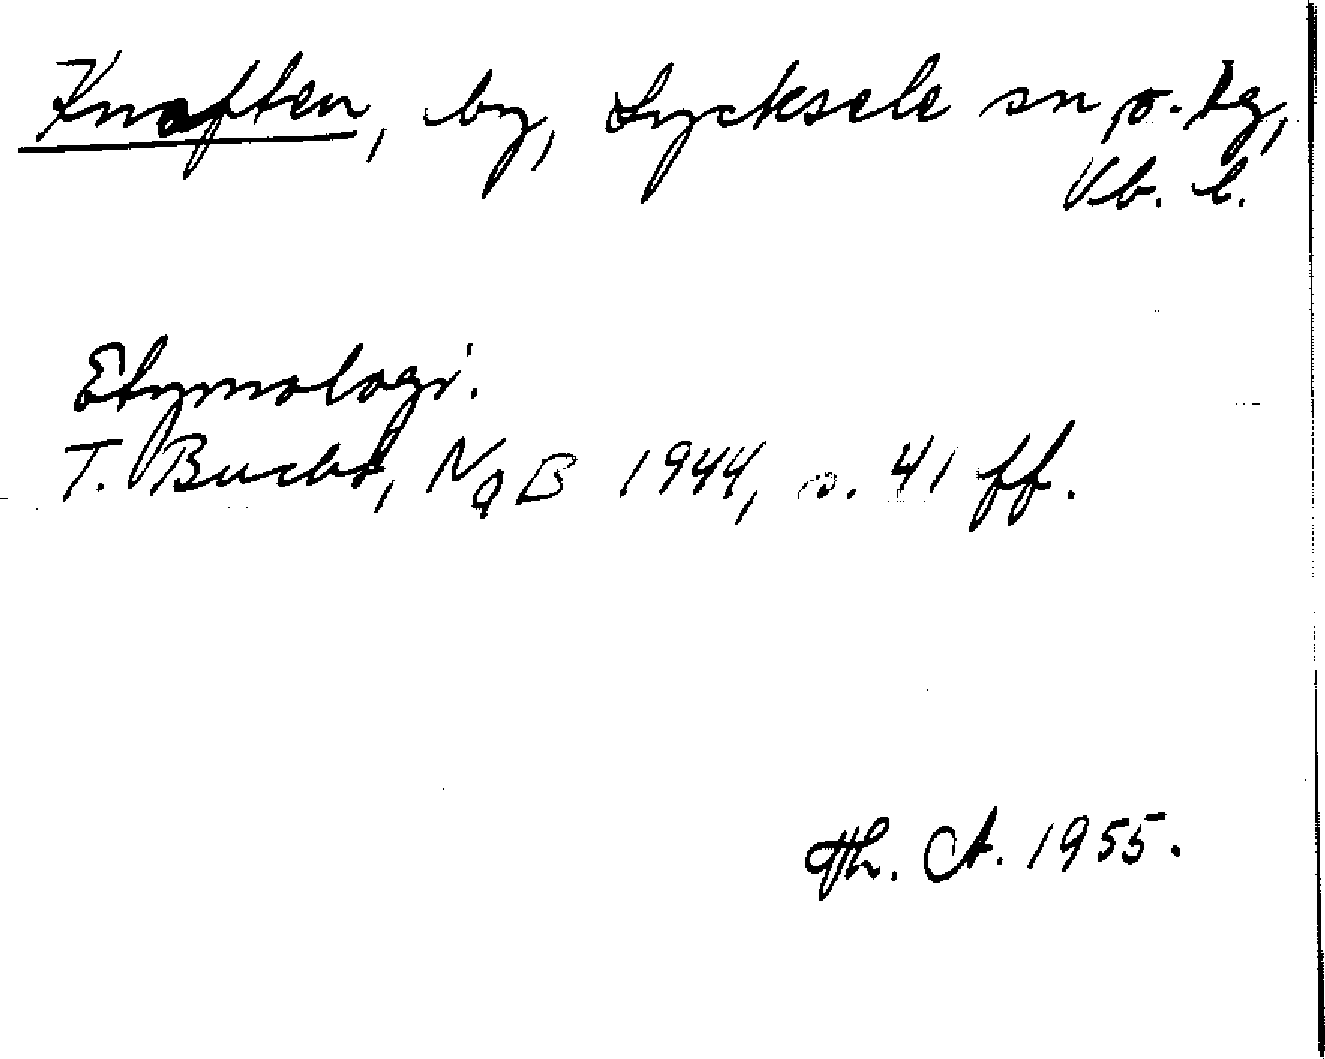 Knaften, by, Lycksele sn o. tg,
Vb. l.
Etymologi.
T. Bucht, NoB 1944, s. 41 ff.
Hh. A. 1955.